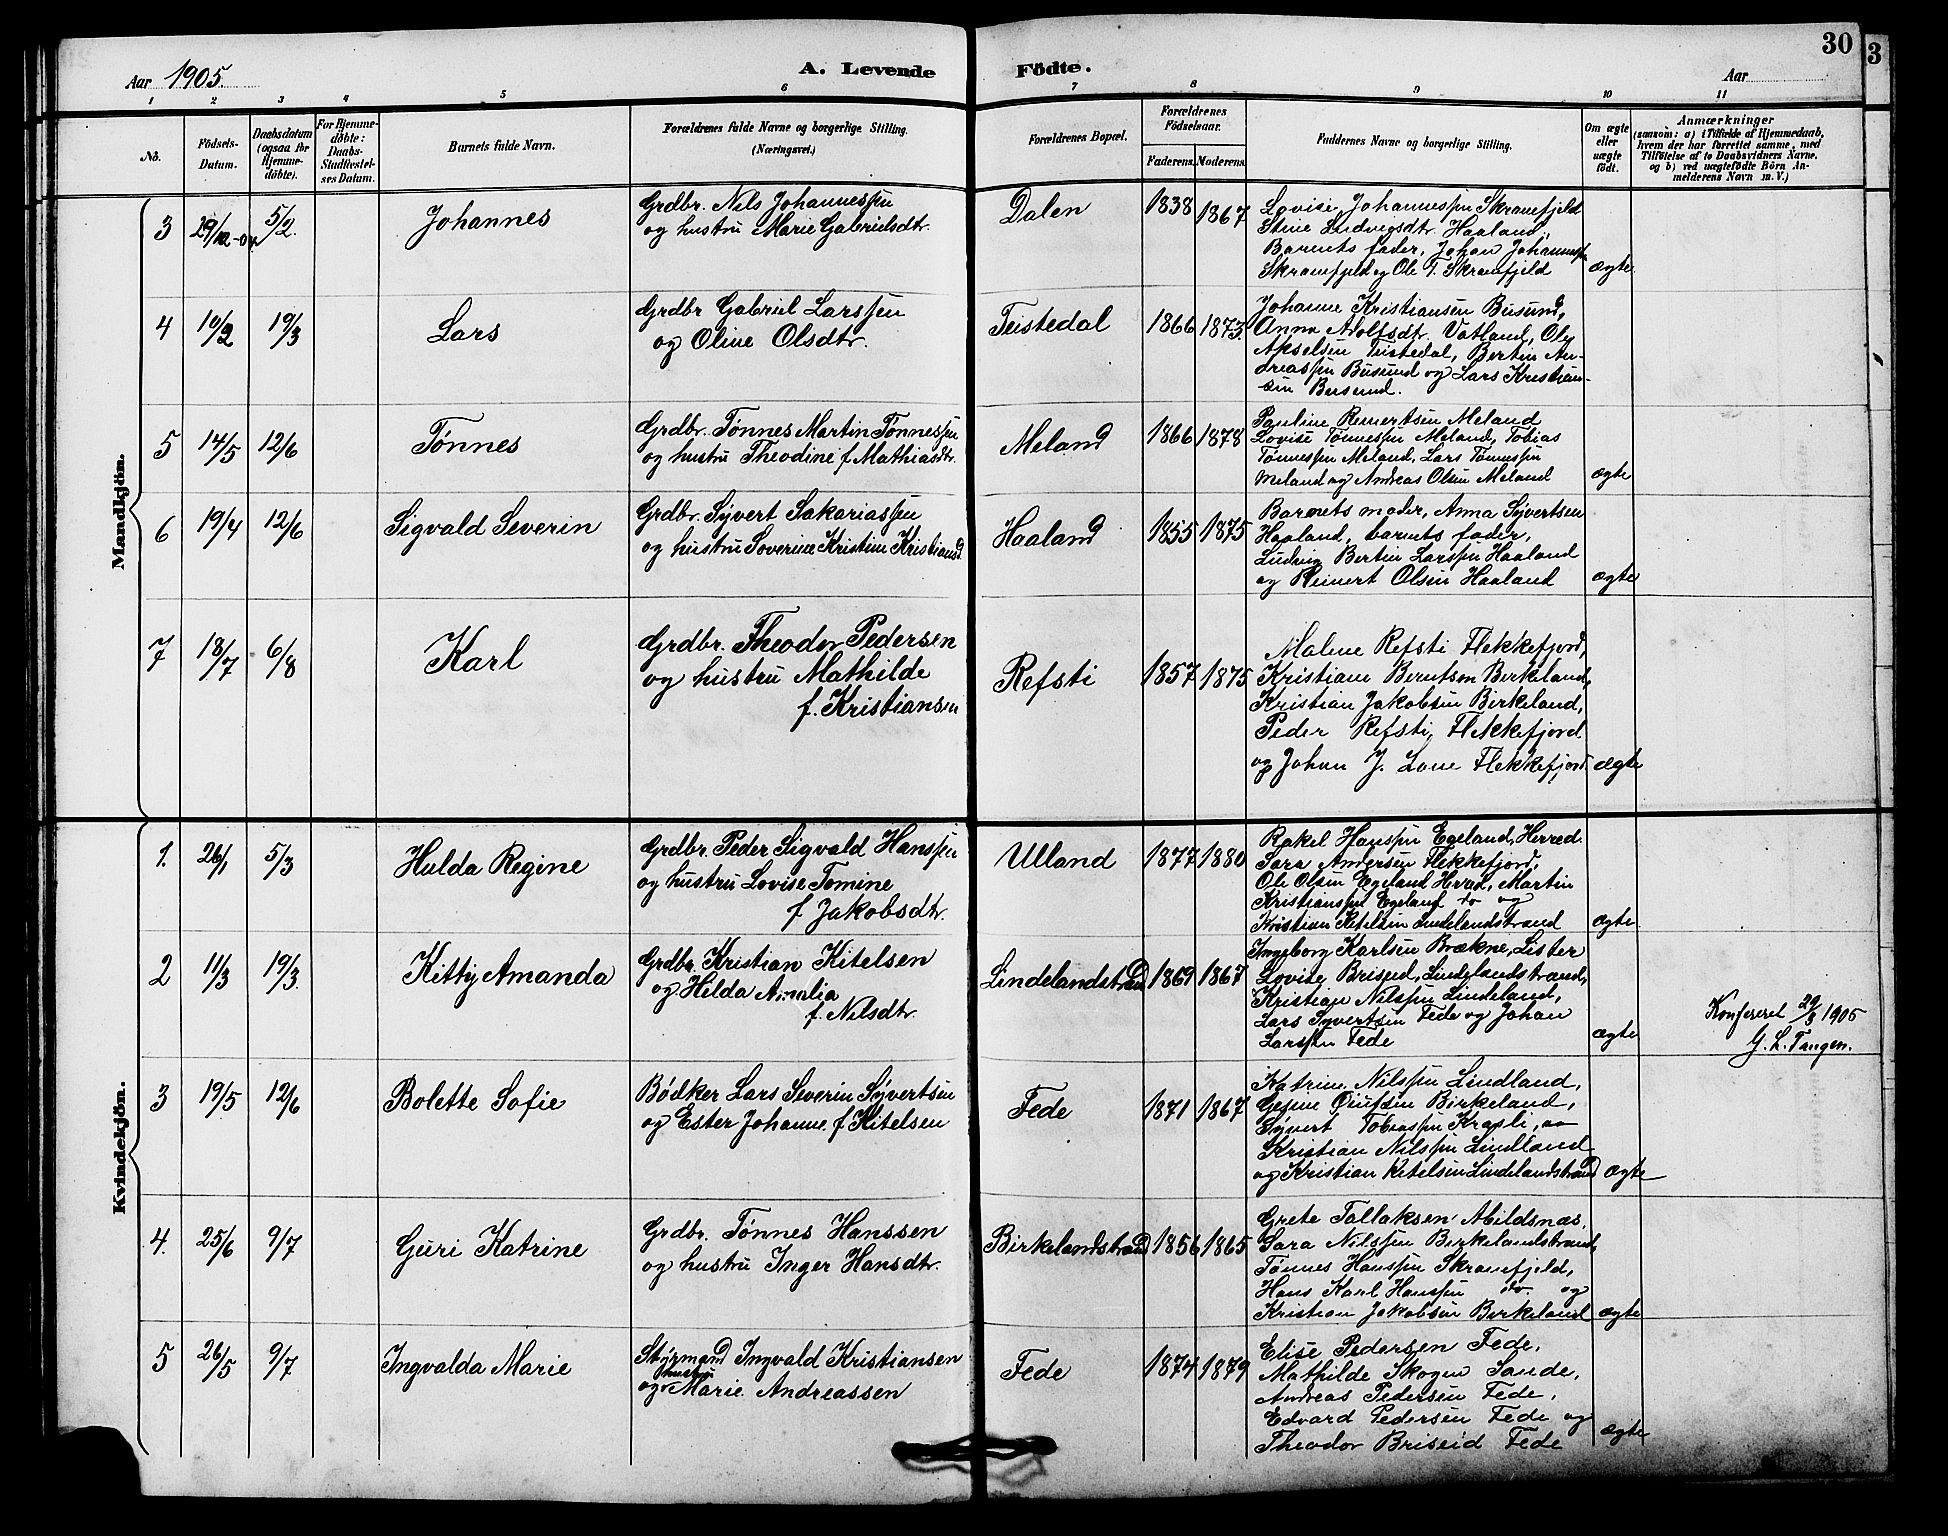 30
3
Aar 1905.
A. Levende
Födte.
Aar
1 2 3 4 5 6 7 8 9 10 11
No.
Födsels-
Datum.
Daabsdatum
(ogsaa for
Hjemme-
döbte).
For Hjemme-
döbte:
Daabs-
Stadfæstel-
ses Datum.
Barnets fulde Navn.
Forældrenes fulde Navne og borgerlige Stilling.
(Næringsvei.)
Forældrenes Bopæl.
Forældrenes
Födselsaar.
Faderens.
Moderens.
Faddernes Navne og borgerlige Stilling.
Om ægte
eller
uægte
födt.
Anmærkninger
(saasom: a) i Tilfælde af Hjemmedaab,
hvem der har forrettet samme, med
Tilföielse af to Daabsvidners Navne,
og b) ved uægtefödte Börn An-
melderens Navn m. V.)
Mandkjön.
3
29/12-04
5/2.
Johannes
Grdbr. Nils Johannessen
og hustru Marie Gabrielsdtr.
Dalen
1838
1867
Lovise Johannessen Skranefjeld
Stine Ludvigsdtr. Haaland,
Barnets fader, Johan Johannessen
Skranefjeld og Ole T. Skranefjeld
ægte
4
10/2
19/3
Lars
Grdbr Gabriel Larssen
og Oline Olsdtr.
Teistedal
1866
1873.
Johanne Kristiansen Busund,
Anna Adolfsdtr. Vatland, Ole
Akselsen Teistedal, Bertin An-
dreassen Busund og Lars Kristian-
sen Busund.
5
14/5
12/6
Tønnes
Grdbr. Tønnes Martin Tønnessen
og hustru Theodine f. Mathiasdtr.
Meland
1866
1878
Pauline Reinertsen Meland
Lovise Tønnessen Meland, Tobias
Tønnessen Meland, Lars Tønnessen
Meland og Andreas Olsen Meland
ægte
6
19/4
12/6
Sigvald Severin
Grdbr. Syvert Sakariassen
og hustru Soverine Kristine Kristiansd
Haaland
1855
1875
Barnets moder, Anna Syvertsen
Haaland, barnets fader,
Ludvig Bertin Larssen Haaland
og Reinert Olsen Haaland
ægte
7
18/7
6/8
Karl
Grdbr. Theodor Pedersen
og hustru Mathilde
f. Kristiansen
Refsti
1857
1875
Malene Refsti Flekkefjord,
Kristiane Berntsen Birkeland,
Kristian Jakobsen Birkeland,
Peder Refsti, Flekkefjord
og Johan J. Lone Flekkefjord
ægte
Kvindekjön.
1.
26/1
5/3
Hulda Regine
Grdbr. Peder Sigvald Hanssen
og hustru Lovise Tomine
f Jakobsdtr.
Ulland
1877
1880
Rakel Hanssen Egeland, Herred
Sara Andersen Flekkefjord,
Ole Olsen Egeland Herred, Martin
Kristianssen Egeland do og
Kristian Kitelsen Lindelandstrand
ægte.
2
11/3
19/3.
Kitty Amanda
Grdbr. Kristian Kitelsen
og Hilda Amalia
f. Nilsdtr.
Lindelandstrand
1869
1867
Ingeborg Karlsen Brækne, Lister
Lovise Briseid, Lindelandstrand,
Kristian Nilssen Lindeland,
Lars Syvertsen Fede og Johan
Larssen Fede
ægte
Konfereret 29/3 1905
G. L. Tangen.
3
19/5
12/6
Bolette Sofie
Bødker Lars Severin Syvertsen
og Ester Johanne f. Kitelsen
Fede
1871
1867
Katrine Nilssen Lindland,
Gesine Birkeland,
Syvert Tobiassen
Kristian Nilssen Lindland
og Kristian Kitelsen Lindelandstrand
ægte
4.
25/6
9/7
Guri Katrine
Grdbr. Tønnes Hanssen
og hustru Inger Hansdtr.
Birkelandstrand
1856
1865
Grete Tallaksen Abildsnæs,
Sara Nilssen Birkelandstrand,
Tønnes Hanssen Skranefjeld,
Hans Karl Hanssen do og
Kristian Jakobsen Birkeland
ægte
5
26/5
9/7
Ingvalda Marie
Styrmand Ingvald Kristiansen
hustru
og Marie Andreassen
Fede
1874
1879
Elise Pedersen Fede,
Mathilde Skogen Sande,
Andreas Pedersen Fede,
Edvard Pedersen Fede og
Theodor Briseid Fede
ægte